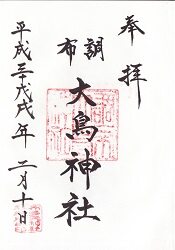 奉拝
調布
大鳥神社
平成三十戊戌年 二月十日